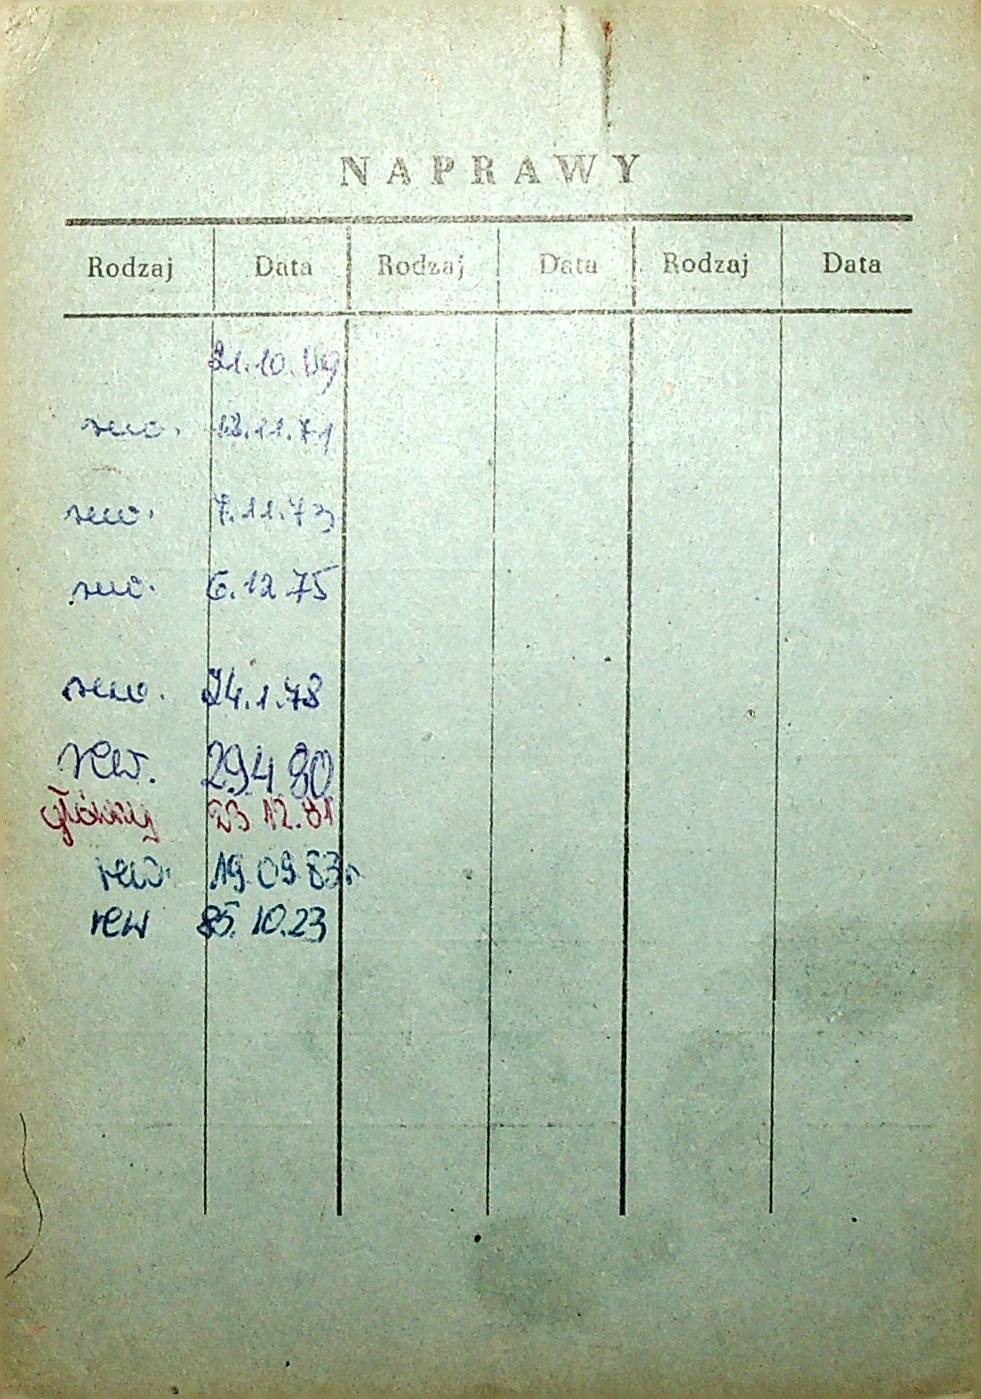 NAPRAWY
Rodzaj Data Rodzaj Data Rodzaj Data
21.10.69
rew. 13.11.71
rew. 7.11.73
rew. 6.12.75
rew. 24.1.78
rew. 29.4.80
główny 23.12.81
rew. 19.09.83r.
rew 85.10.23